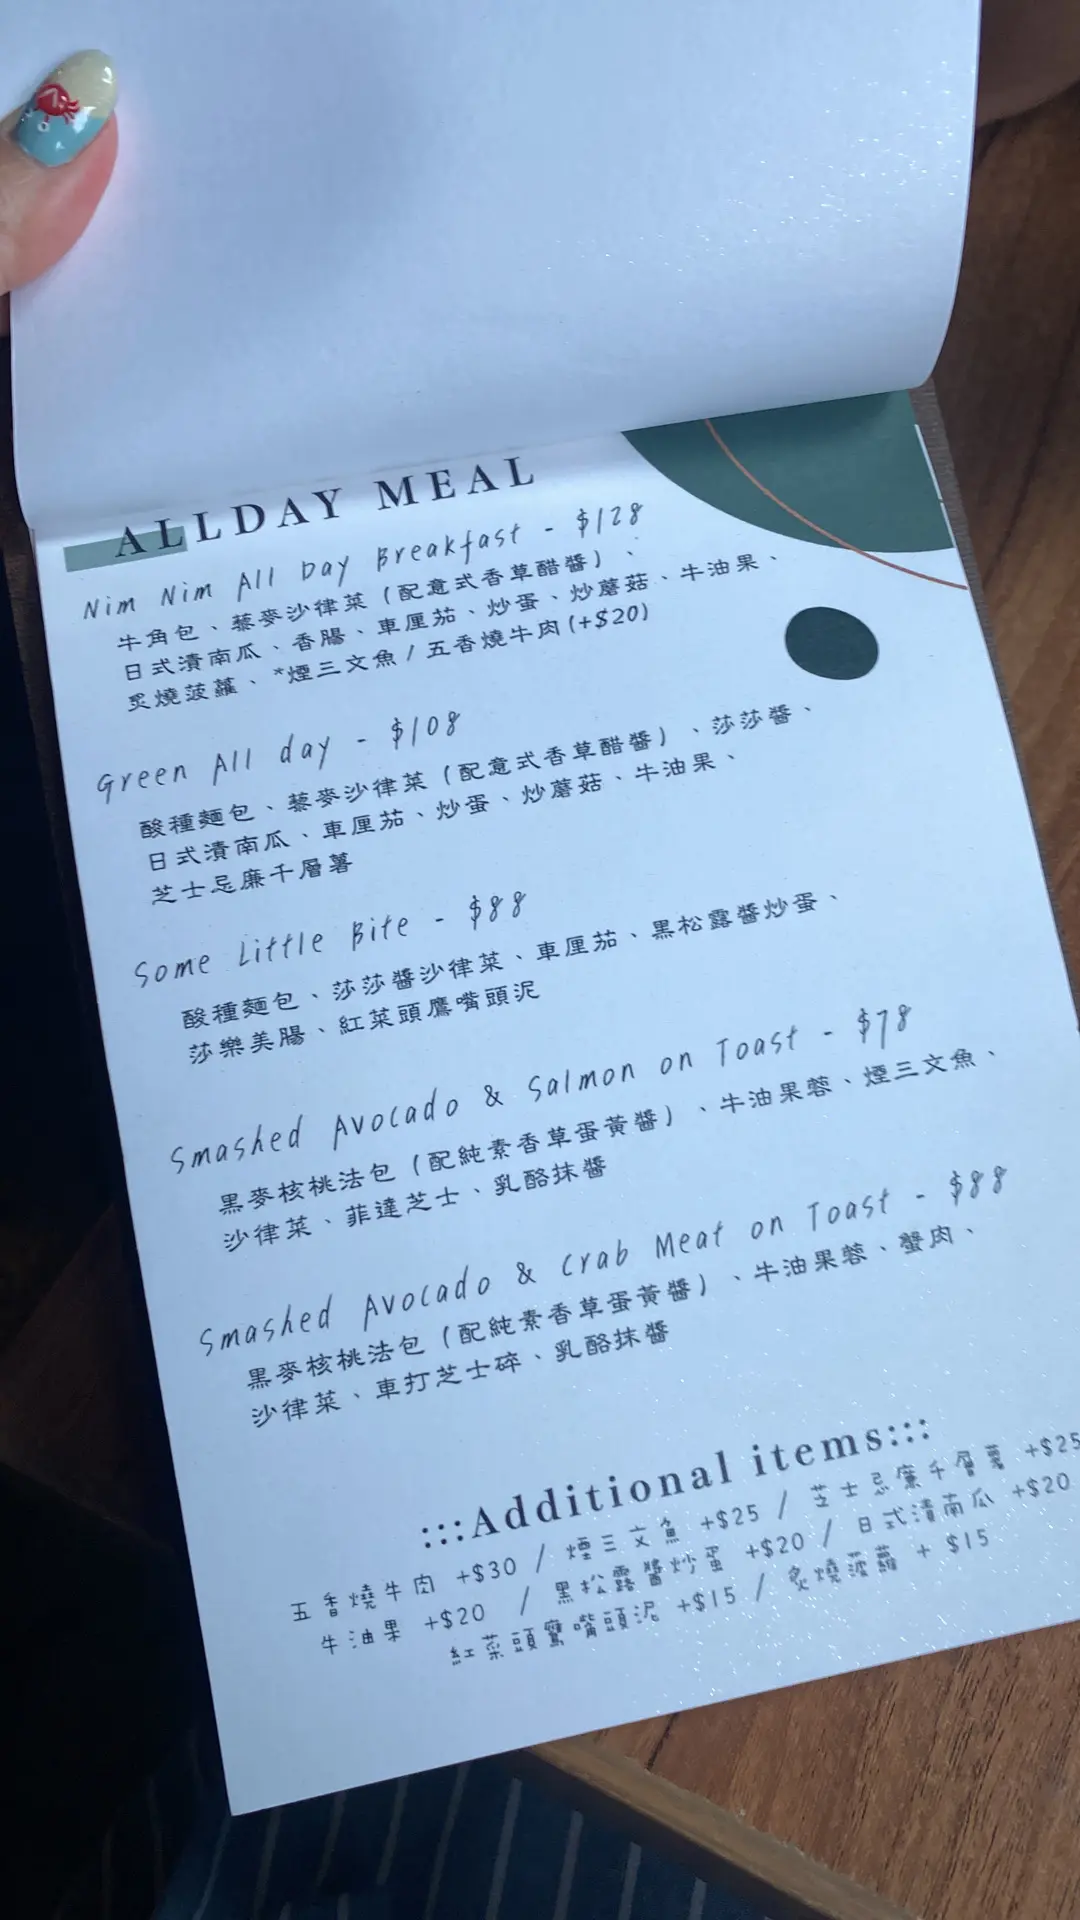 ALLDAY MEAL
Nim Nim All Day Breakfast - $128
牛角包、藜麥沙律菜(配意式香草醋醬)、
日式漬南瓜、香腸、車厘茄、炒蛋、炒蘑菇、牛油果、
炙燒菠蘿、*煙三文魚/五香燒牛肉(+$20)
Green All day - $108
酸種麵包、藜麥沙律菜(配意式香草醋醬)、莎莎醬、
日式漬南瓜、車厘茄、炒蛋、炒蘑菇、牛油果、
芝士忌廉千層薯
Some Little Bite - $88
酸種麵包、莎莎醬沙律菜、車厘茄、黑松露醬炒蛋、
莎樂美腸、紅菜頭鷹嘴頭泥
Smashed Avocado & Salmon on Toast - $78
黑麥核桃法包(配純素香草蛋黃醬)、牛油果蓉、煙三文魚、
沙律菜、菲達芝士、乳酪抹醬
Smashed Avocado & Crab Meat on Toast - $88
黑麥核桃法包(配純素香草蛋黃醬)、牛油果蓉、蟹肉、
沙律菜、車打芝士碎、乳酪抹醬
:::Additional items:::
五香燒牛肉 +$30 / 煙三文魚 +$25 / 芝士忌廉千層薯 +$25
牛油果 +$20 / 黑松露醬炒蛋 +$20 / 日式漬南瓜 +$20
紅菜頭鷹嘴頭泥 +$15 / 炙燒菠蘿 + $15